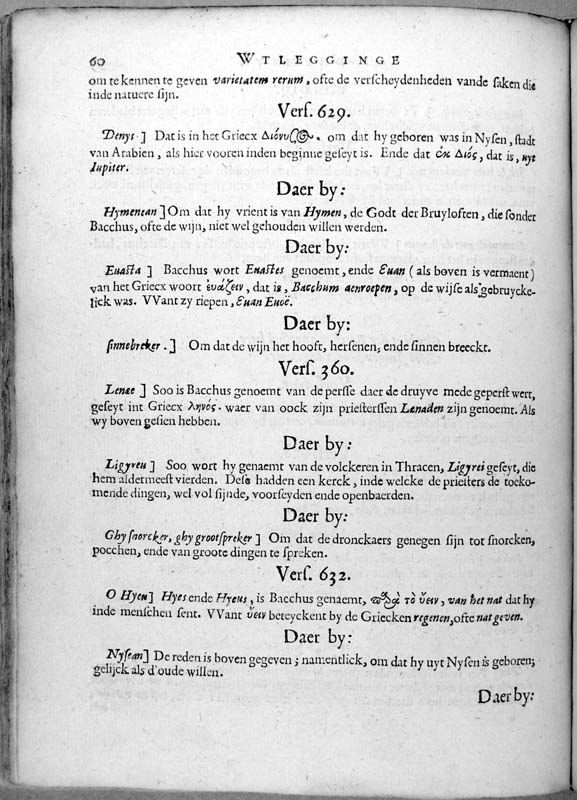 60 WTLEGGINGE
om te kennen te geven varietatem rerum, ofte de verscheydenheden vande saken die
inde natuere sijn.
Vers. 629.
Denys.] Dat is in het Griecx Διόνυζος. om dat hy geboren was in Nysen, stadt
van Arabien, als hier vooren inden beginne geseyt is. Ende dat ἐκ Διός, dat is, uyt
Iupiter.
Daer by:
Hymenean] Om dat hy vrient is van Hymen, de Godt der Bruyloften, die sonder
Bacchus, ofte de wijn, niet wel gehouden willen werden.
Daer by:
Euasta] Bacchus wort Euastes genoemt, ende Euan (als boven is vermaent)
van het Griecx woort ἐυάζειν, dat is, Bacchum aenroepen, op de wijse als gebruycke-
lick was. VVant zy riepen, Euan Euoë.
Daer by:
sinnebreker.] Om dat de wijn het hooft, hersenen, ende sinnen breeckt.
Vers. 360.
Lenæ] Soo is Bacchus genoemt van de persse daer de druyve mede geperst wert,
geseyt int Griecx ληνός. waer van oock zijn priesterssen Lanaden zijn genoemt. Als
wy boven gesien hebben.
Daer by:
Ligyreu] Soo wort hy genaemt van de volckeren in Thracen, Ligyrei geseyt, die
hem aldermeest vierden. Dese hadden een kerck, inde welcke de priesters de toeko-
mende dingen, wel vol sijnde, voorseyden ende openbaerden.
Daer by:
Ghy snorcker, ghy grootspreker] Om dat de dronckaers genegen sijn tot snorcken,
pocchen, ende van groote dingen te spreken.
Vers. 632.
O Hyeu] Hyes ende Hyeus, is Bacchus genaemt, παρὰ τὸ ὕειν, van het nat dat hy
inde menschen sent. VVant ὕειν beteyckent by de Griecken regenen, ofte nat geven.
Daer by:
Nysean] De reden is boven gegeven; namentlick, om dat hy uyt Nysen is geboren;
gelijck als d'oude willen.
Daer by: